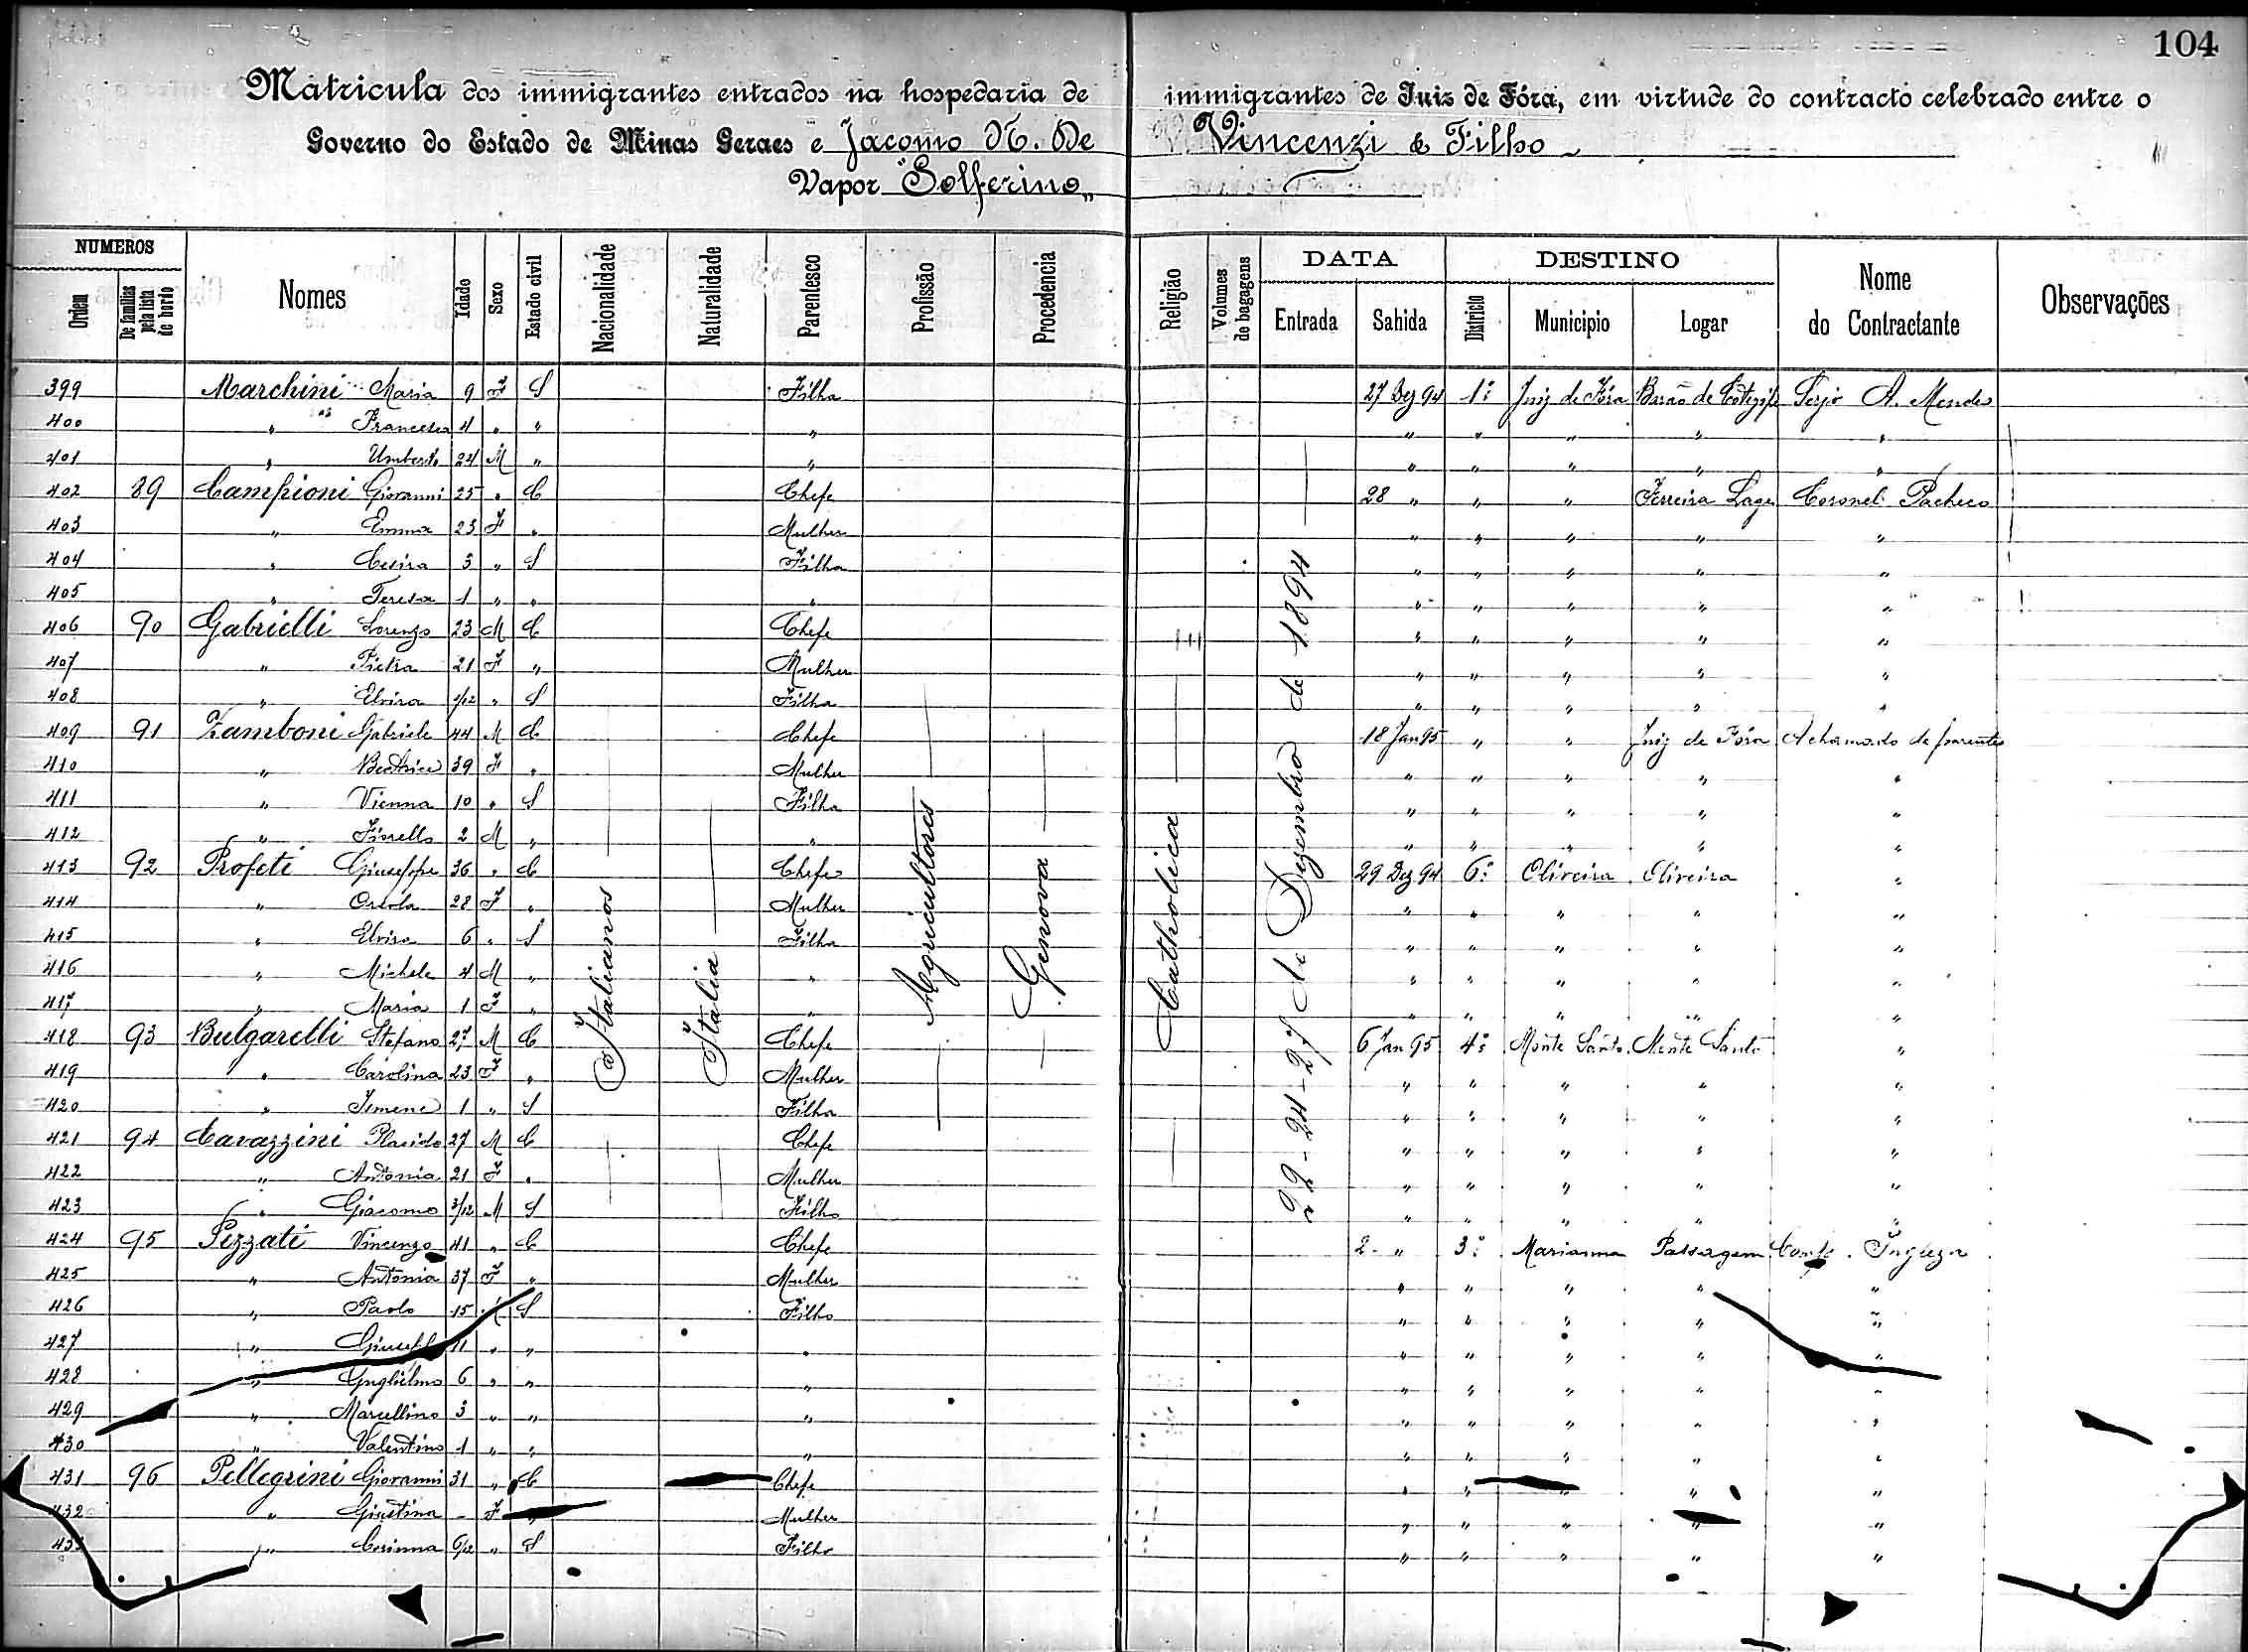 104
Matricula dos immigrantes entrados na hospedaria de immigrantes de Juiz de Fóra, em virtude do contracto celebrado entre o
Governo do Estado de Minas Geraes e Jacomo N. De Vincenzi & Filho
Vapor "Solferino"
NUMEROS DATA DESTINO
Ordem De familias pela lista de bordo Nomes Idade Sexo Estado civil Nacionalidade Naturalidade Parentesco Profissão Procedencia Religião Volumes de bagagens Entrada Sahida Districto Municipio Logar Nome do Contractante Observações
399 Marchini Maria 9 F S Filha 27 Dez 94 1º Juiz de Fóra Barão de Cotegipe A. Mendes
400 " Francesca 4 " " " " " " " "
401 " Umberto 24 M " " " " " " "
402 89 Campioni Giovanni 25 " C Chefe 28 " " " Ferreira Lage Coronel Pacheco
403 " Emma 23 F " Mulher " " " " "
404 " Cesira 3 " S Filha " " " " "
405 " Teresa 1 " " " " " " " "
406 90 Gabrielli Lorenzo 23 M C Chefe " " " " "
407 " Pietra 21 F " Mulher " " " " "
408 " Elvira 1/12 " S Filha " " " " "
409 91 Zamboni Gabriele 44 M C Chefe 18 Jan 95 " " Juiz de Fóra A chamado de parentes
410 " Beatrice 39 F " Mulher " " " " "
411 " Vienna 10 " S Filha " " " " "
412 " Fiorello 2 M " " " " " " "
413 92 Profeti Giuseppe 36 " C Chefe 29 Dez 94 6º Oliveira Oliveira "
414 " 28 F " Mulher " " " " "
415 " Elvira 6 " S Filha " " " " "
416 " Michele 4 M " " " " " " "
417 " Maria 1 F " " " " " " "
418 93 Bulgarelli Stefano 27 M C Chefe 6 Jan 95 4º Monte Santo Monte Santo "
419 " Carolina 23 F " Mulher " " " " "
420 " Imene 1 " S Filha " " " " "
421 94 Cavazzini Placido 27 M C Chefe " " " " "
422 " Antonia 21 F " Mulher " " " " "
423 " Giacomo 3/12 M S Filho " " " " "
424 95 Pezzati Vincenzo 41 " C Chefe 2 " 3º Marianna Passagem Comp. Ingleza
425 " Antonia 37 F " Mulher " " " " "
426 " Paolo 15 S Filho " " " " "
427 " 11 " " " " " " " "
428 " Guglielmo 6 " " " " " " " "
429 " Marcellino 3 " " " " " " " "
430 " Valentino 1 " " " " " " " "
431 96 Pellegrini Giovanni 31 " C Chefe " " " " "
432 " Giustina - F " Mulher " " " " "
433 " Corinna 6/12 " S Filho " " " " "
Italianos
Italia
Agricultores
Genova
Catholica
22-24-27 de Dezembro de 1894